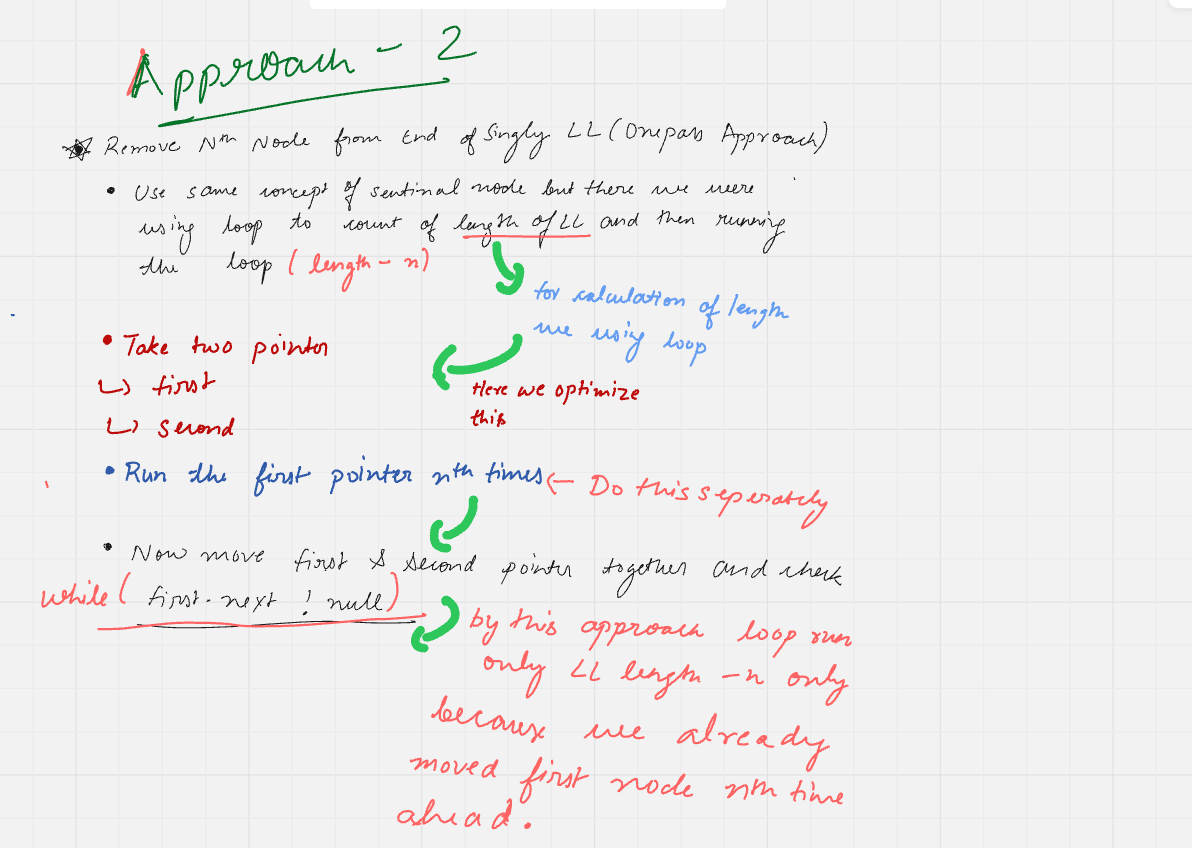 Approach - 2
Remove Nth Node from End of Singly LL (Onepass Approach)
• Use same concept of sentinal node but there we were
using loop to count of length of LL and then running
the loop (length - n)
for calculation of length
we using loop
• Take two pointer
↳ first
↳ second
Here we optimize
this
• Run the first pointer nth times ← Do this seperately
• Now move first & second pointer together and check
while ( first.next ! null)
by this approach loop run
only LL length - n only
because we already
moved first node nth time
ahead.